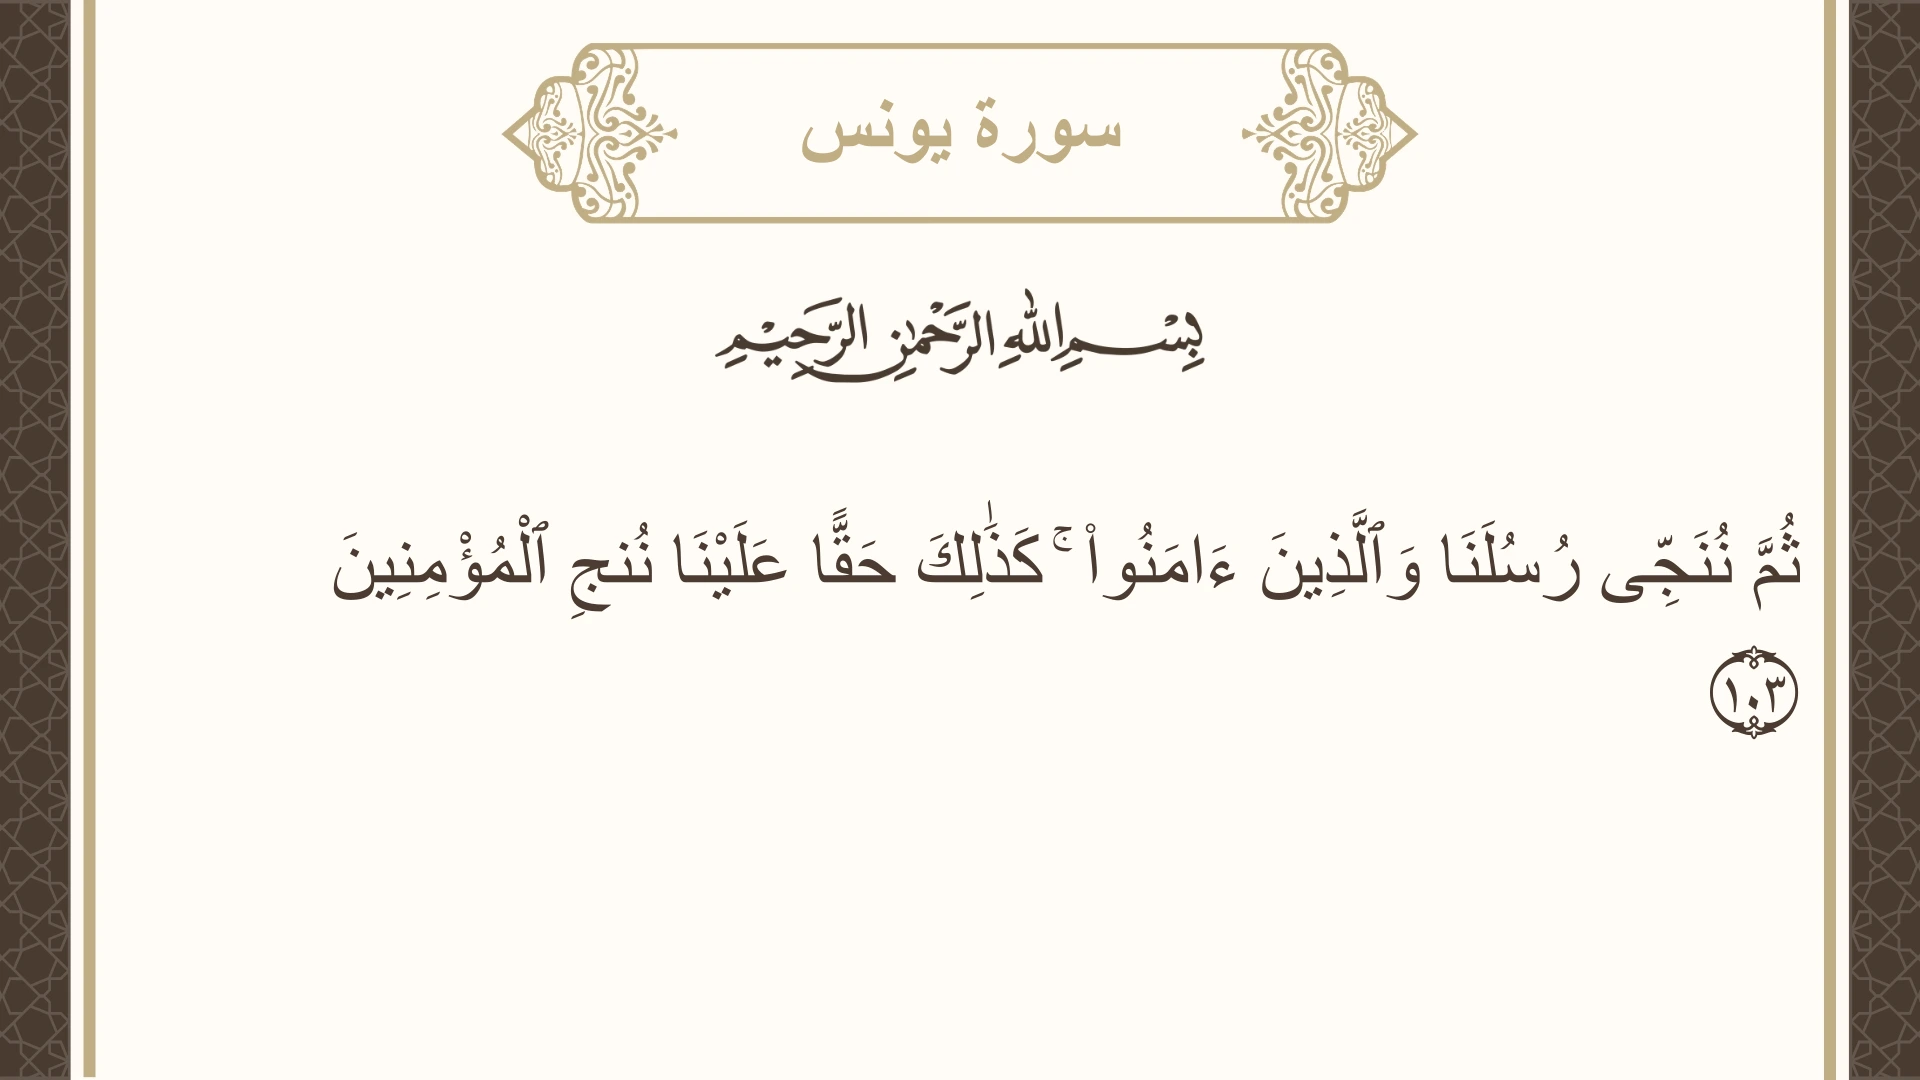 سورة يونس
بِسْمِ اللهِ الرَّحْمٰنِ الرَّحِيْمِ
ثُمَّ نُنَجِّى رُسُلَنَا وَٱلَّذِينَ ءَامَنُوا۟ ۚ كَذَٰلِكَ حَقًّا عَلَيْنَا نُنجِ ٱلْمُؤْمِنِينَ
١٠٣